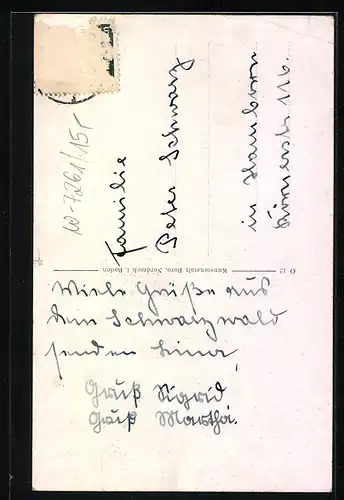 W-7261/15r
Familie
Peter Schwarz
in Hamborn
Körnerstr 116.
O 12 Kunstanstalt Boro, Nordrach i. Baden
Viele Grüße aus
dem Schwarzwald
senden Lina,
Gruß Sigrid
Gruß Martha.